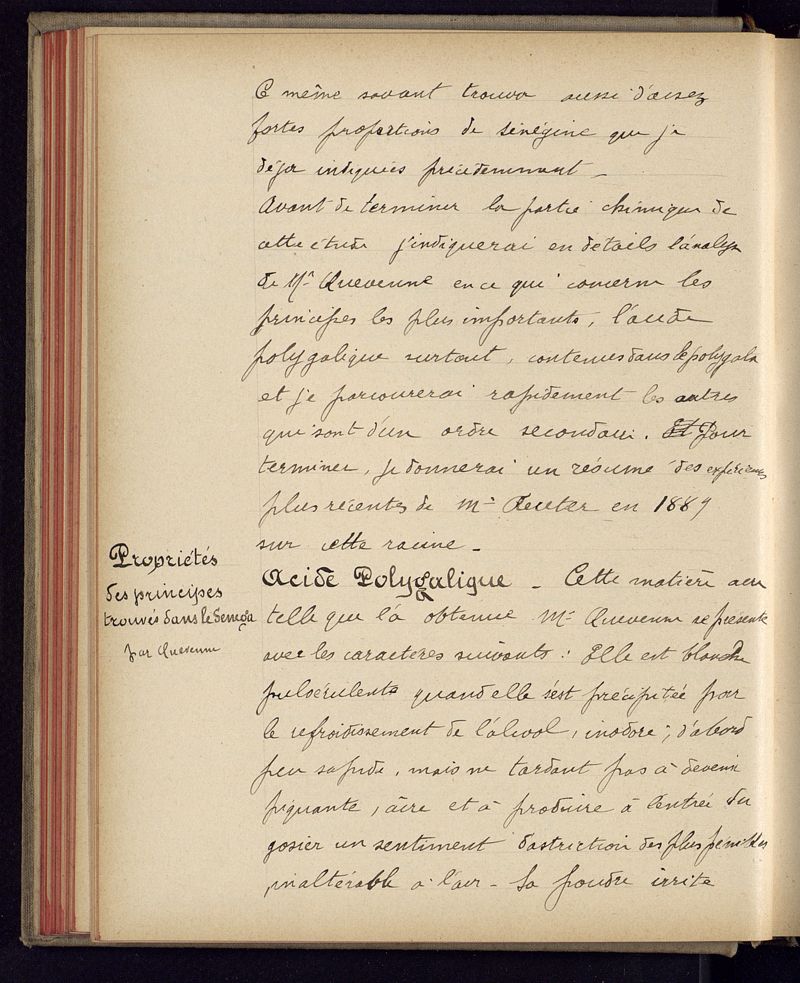 Ce même savant trouva aussi d'assez
fortes proportions de sénégine que j'ai
déja indiquées précédemment _
Avant de terminer la partie chimique de
cette étude j'indiquerai en détails l'analyse
de Mr Quevenne en ce qui concerne les
principes les plus importants, l'acide
polygalique surtout, contenus dans le polygala
et je parcourerai rapidement les autres
qui sont d'un ordre secondaire. Et Pour
terminer, je donnerai un résumé des expériences
plus récentes de Mr Reuter en 1889
sur cette racine _
Propriétés
des principes
trouvés dans le Senega
par Quevenne
Acide Polygalique _ Cette matière
telle que l'a obtenue Mr Quevenne se présente
avec les caractères suivants : Elle est blanche
pulvérulente quand elle s'est précipitée par
le refroidissement de l'alcool, inodore ; d'abord
peu sapide, mais ne tardant pas à devenir
piquante, âcre et à produire à l'entrée du
gosier un sentiment d'astriction des plus pénibles
inaltérable à l'air _ Sa poudre irrite